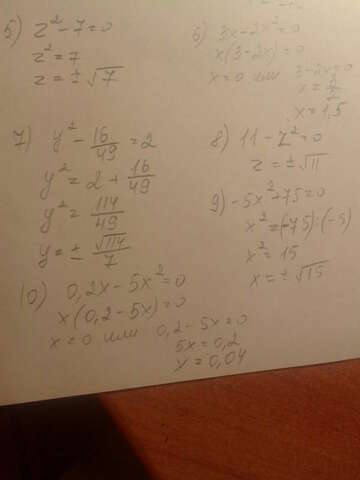 5) z² - 7 = 0
z² = 7
z = ± √7
6) 3x - 2x² = 0
x(3 - 2x) = 0
x = 0 или 3 - 2x = 0
x = 3/2
x = 1,5
7) y² - 16/49 = 2
y² = 2 + 16/49
y² = 114/49
y = ± √114/7
8) 11 - z² = 0
z = ± √11
9) -5x² + 75 = 0
x² = (-75) : (-5)
x² = 15
x = ± √15
10) 0,2x - 5x² = 0
x(0,2 - 5x) = 0
x = 0 или 0,2 - 5x = 0
5x = 0,2
x = 0,04